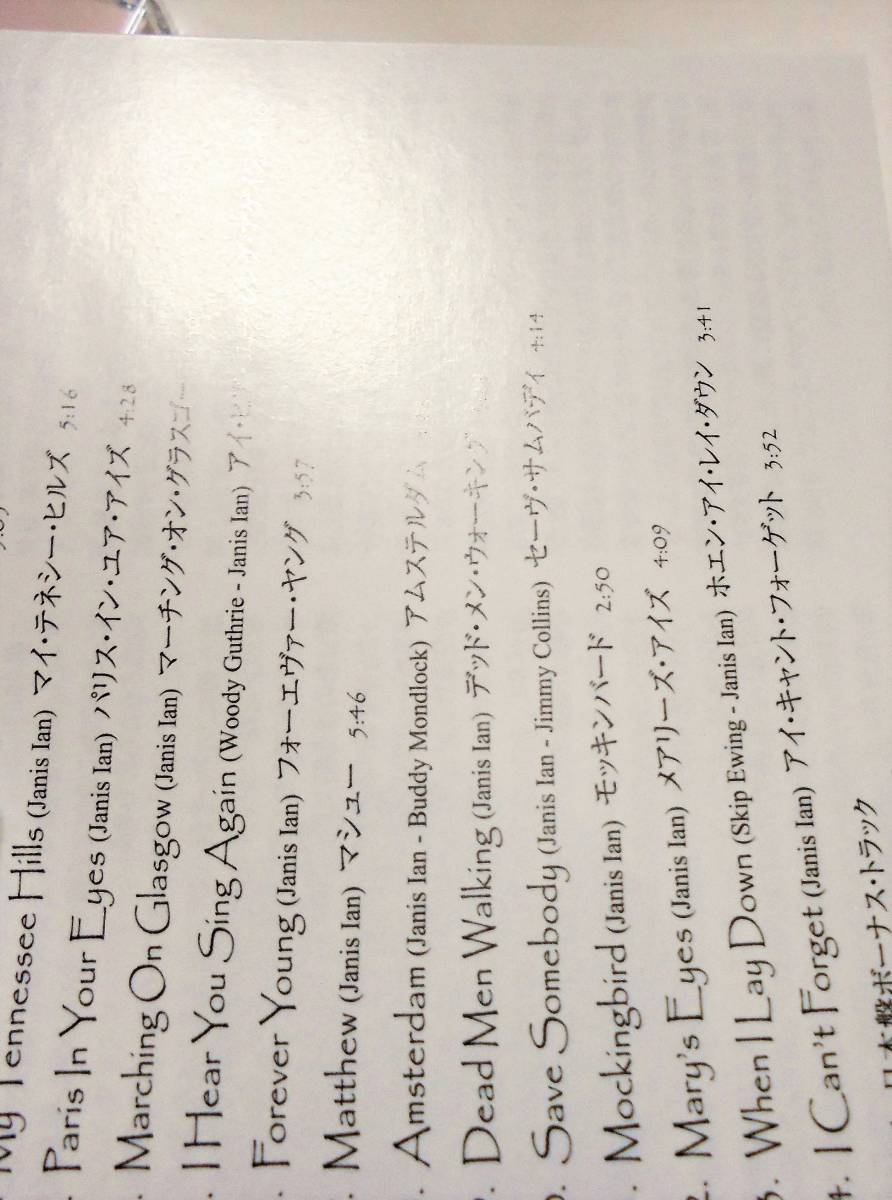 My Tennessee Hills (Janis Ian) マイ・テネシー・ヒルズ 5:16
. Paris In Your Eyes (Janis Ian) パリス・イン・ユア・アイズ 4:28
. Marching On Glasgow (Janis Ian) マーチング・オン・グラスゴー
. I Hear You Sing Again (Woody Guthrie - Janis Ian) アイ・
. Forever Young (Janis Ian) フォーエヴァー・ヤング 3:57
. Matthew (Janis Ian) マシュー 5:46
. Amsterdam (Janis Ian - Buddy Mondlock) アムステルダム
. Dead Men Walking (Janis Ian) デッド・メン・ウォーキング
. Save Somebody (Janis Ian - Jimmy Collins) セーヴ・サムバディ 4:14
. Mockingbird (Janis Ian) モッキンバード 2:50
. Mary's Eyes (Janis Ian) メアリーズ・アイズ 4:09
. When I Lay Down (Skip Ewing - Janis Ian) ホエン・アイ・レイ・ダウン 3:41
4. I Can't Forget (Janis Ian) アイ・キャント・フォーゲット 3:52
日本盤ボーナス・トラック